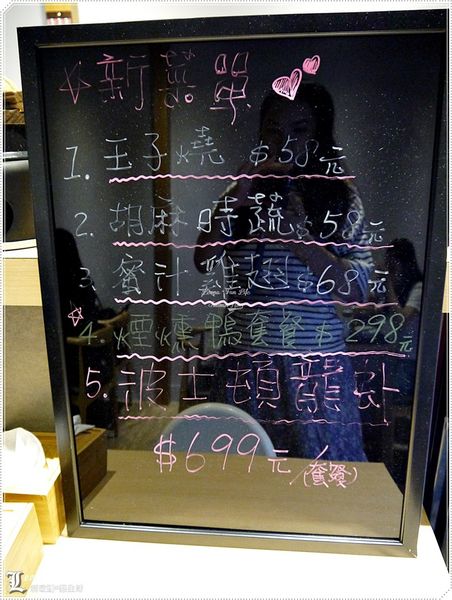 新菜單
1. 玉子燒 $58元
2. 胡麻時蔬 $58元
3. 蜜汁雞翅 $68元
4. 煙燻鴨套餐 $298元
5. 波士頓龍蝦
$699元/(套餐)
L